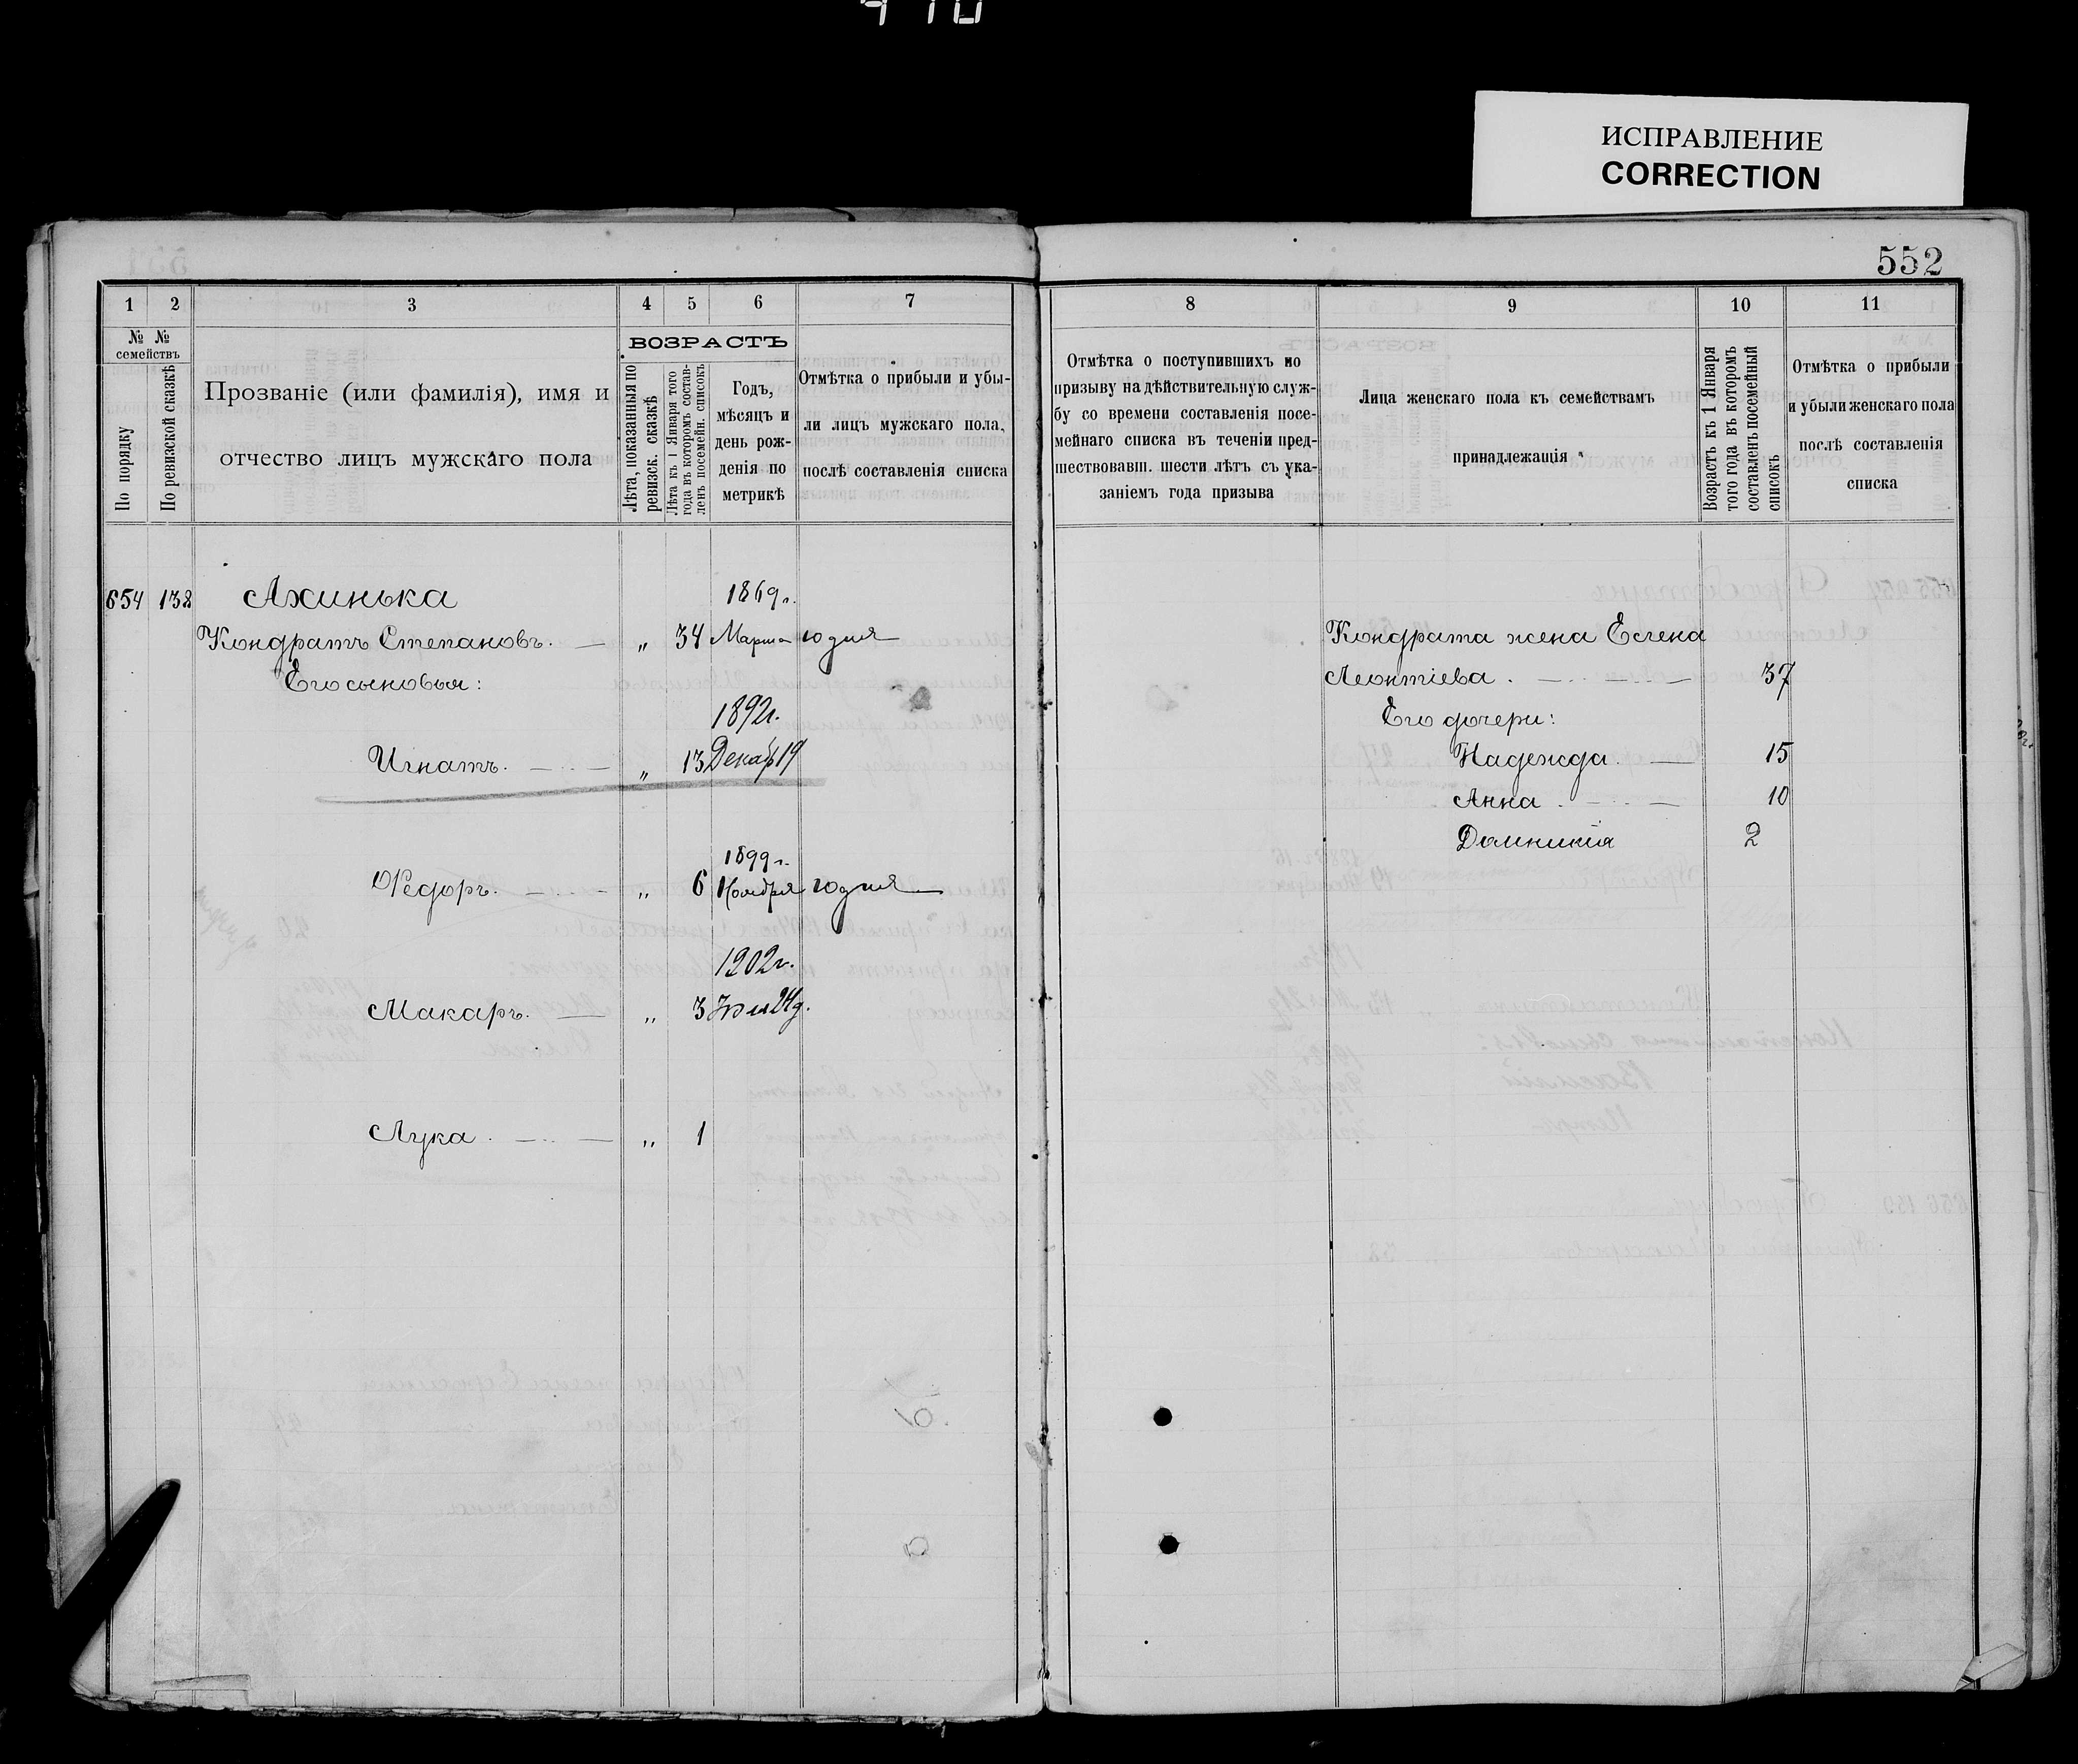 ИСПРАВЛЕНИЕ
CORRECTION
552
1 2 3 4 5 6 7
№ №
семействъ
По порядку
По ревизской сказкѣ
Прозваніе (или фамилія), имя и
отчество лицъ мужскаго пола
ВОЗРАСТЪ
Лѣта, показанныя по
ревизск. сказкѣ
Лѣта къ 1 Января того
года въ которомъ состав-
ленъ посемейн. списокъ
Годъ,
мѣсяцъ и
день рож-
денія по
метрикѣ
Отмѣтка о прибыли и убы-
ли лицъ мужскаго пола,
послѣ составленія списка
654 138 Ахинька 1869г.
Кондратъ Степановъ. — „ 34 Марта 10 дня
Его сыновья:
1892г.
Игнатъ. — „ 13 Декаб 19
1899г.
Ѳедоръ. — „ 6 Ноября 10 дня
1902г.
Макаръ. — „ 3 24д.
Лука. — „ 1
8 9 10 11
Отмѣтка о поступившихъ по
призыву на дѣйствительную служ-
бу со времени составленія посе-
мейнаго списка въ теченіи пред-
шествовавш. шести лѣтъ съ ука-
заніемъ года призыва
Лица женскаго пола къ семействамъ
принадлежащія
Возрастъ къ 1 Января
того года въ которомъ
составленъ посемейный
списокъ
Отмѣтка о прибыли
и убыли женскаго пола
послѣ составленія
списка
Кондрата жена Елена
Леонтіева. — 37
Его дочери:
Надежда. — 15
Анна. — 10
Домникія 2